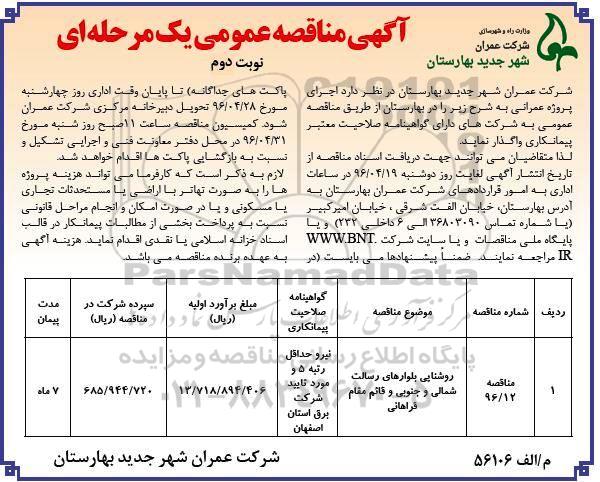 وزارت راه و شهرسازی
شرکت عمران
شهر جدید بهارستان
آگهی مناقصه عمومی یک مرحله‌ای
نوبت دوم
شرکت عمران شهر جدید بهارستان در نظر دارد اجرای
پروژه عمرانی به شرح زیر را در بهارستان از طریق مناقصه
عمومی به شرکت های دارای گواهینامه صلاحیت معتبر
پیمانکاری واگذار نماید.
لذا متقاضیان می توانند جهت دریافت اسناد مناقصه از
تاریخ انتشار آگهی لغایت روز دوشنبه ۹۶/۰۴/۱۹ در ساعات
اداری به امور قراردادهای شرکت عمران بهارستان به
آدرس بهارستان، خیابان الفت شرقی ، خیابان امیرکبیر
(یا شماره تماس ۳۶۸۰۳۰۹۰ الی ۶ داخلی ۲۳۳) و یا
پایگاه ملی مناقصات و یا سایت شرکت WWW.BNT.
IR مراجعه نمایند. ضمناً پیشنهادها می بایست (در
پاکت های جداگانه) تا پایان وقت اداری روز چهارشنبه
مورخ ۹۶/۰۴/۲۸ تحویل دبیرخانه مرکزی شرکت عمران
شود. کمیسیون مناقصه ساعت ۱۱صبح روز شنبه مورخ
۹۶/۰۴/۳۱ در محل دفتر معاونت فنی و اجرایی تشکیل و
نسبت به بازگشایی پاکت ها اقدام خواهد شد.
لازم به ذکر است که کارفرما می تواند هزینه پروژه
ها را به صورت تهاتر با اراضی یا مستحدثات تجاری
یا مسکونی و یا در صورت امکان و انجام مراحل قانونی
نسبت به پرداخت بخشی از مطالبات پیمانکار در قالب
اسناد خزانه اسلامی یا نقدی اقدام نماید. هزینه آگهی
به عهده برنده مناقصه می باشد.
ParsNamadData
ردیف
شماره مناقصه
موضوع مناقصه
گواهینامه
صلاحیت
پیمانکاری
مبلغ برآورد اولیه
(ریال)
سپرده شرکت در
مناقصه (ریال)
مدت
پیمان
۱
مناقصه
۹۶/۱۲
روشنایی بلوارهای رسالت
شمالی و جنوبی و قائم مقام
فراهانی
نیرو حداقل
رتبه ۵ و
مورد تایید
شرکت
برق استان
اصفهان
۱۳/۷۱۸/۸۹۴/۴۰۶
۶۸۵/۹۴۴/۷۲۰
۷ ماه
پایگاه اطلاع رسانی مناقصه و مزایده
م/الف ۵۶۱۰۶
شرکت عمران شهر جدید بهارستان